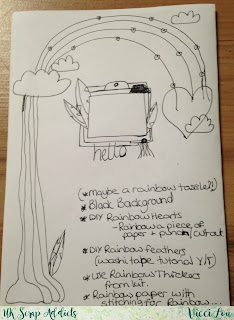 hello
(* maybe a rainbow tassle?!)
* Black Background
* DIY Rainbow Hearts
- Rainbow a piece of
paper + punch/cutout
* DIY Rainbow feathers
(washi tape tutorial Y/T)
* Use Rainbow Thickers
from kit.
* Rainbow paper with
stitching for Rainbow...
UK Scrap Addicts
Vicci Lou